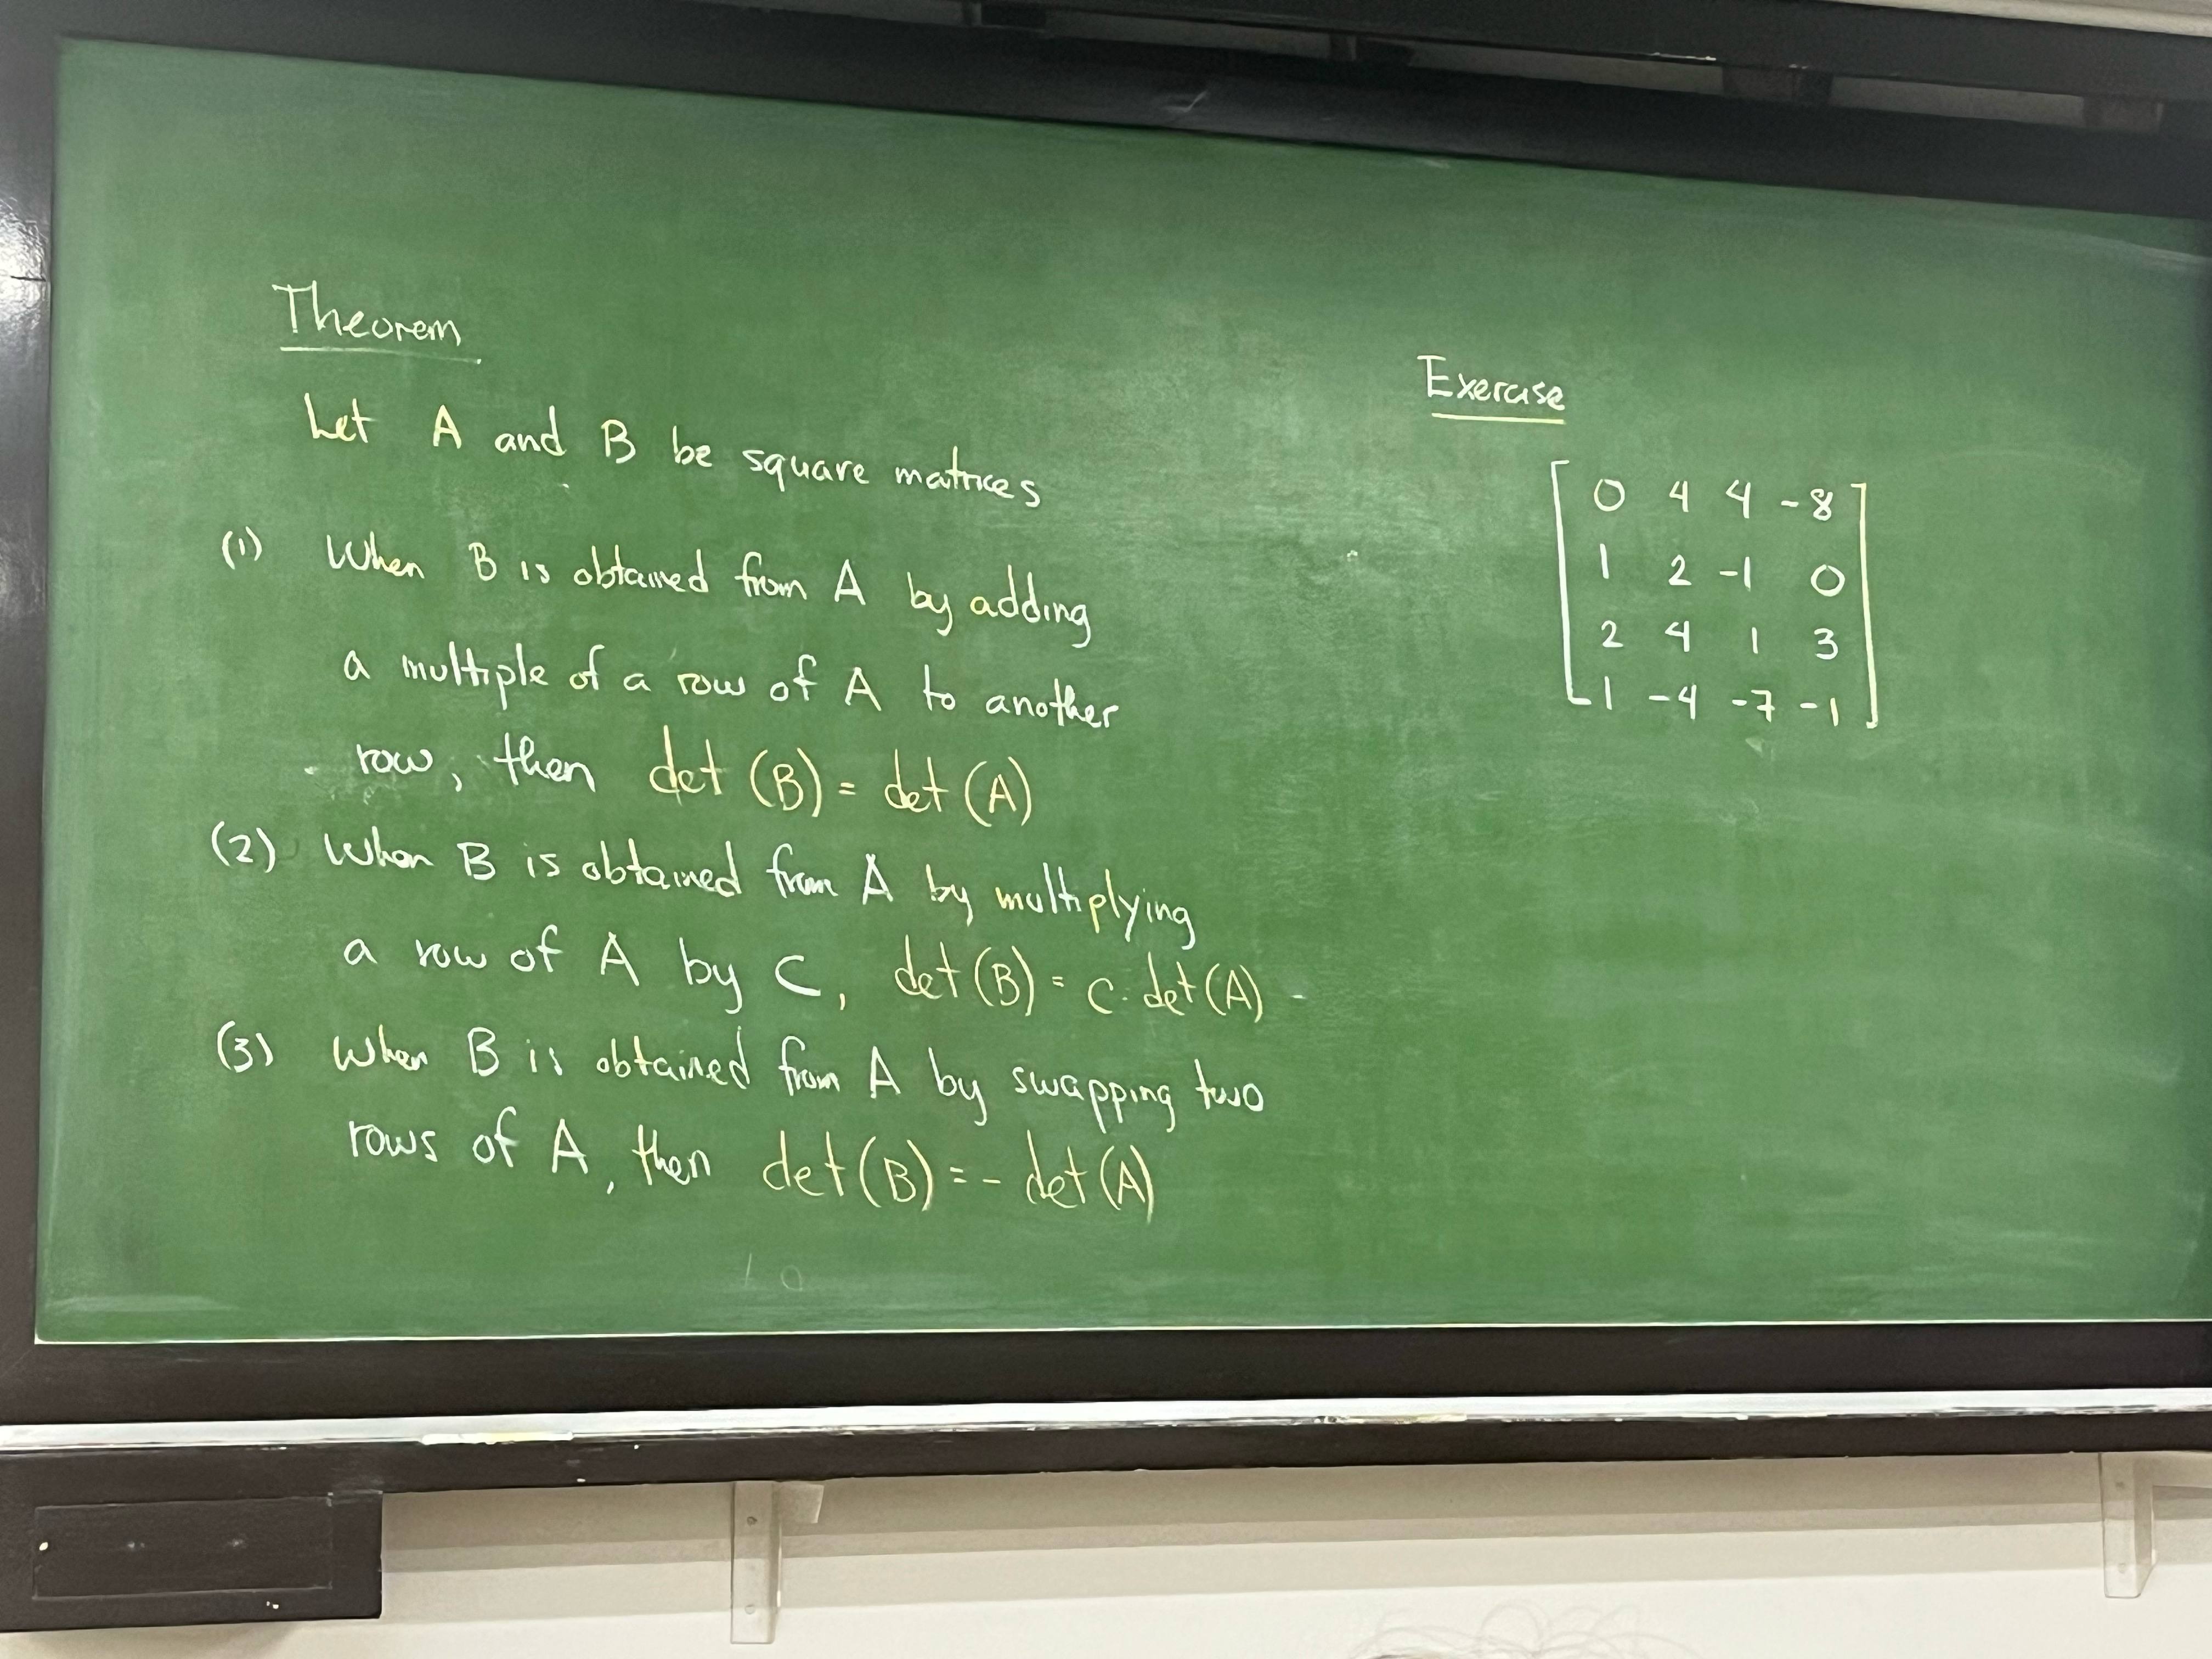 Theorem
Let A and B be square matrices
(1) When B is obtained from A by adding
a multiple of a row of A to another
row, then det (B) = det (A)
(2) When B is obtained from A by multiplying
a row of A by C, det (B) = c · det (A)
(3) When B is obtained from A by swapping two
rows of A, then det (B) = - det (A)
Exercise
0 4 4 -8
1 2 -1 0
2 4 1 3
1 -4 -7 -1